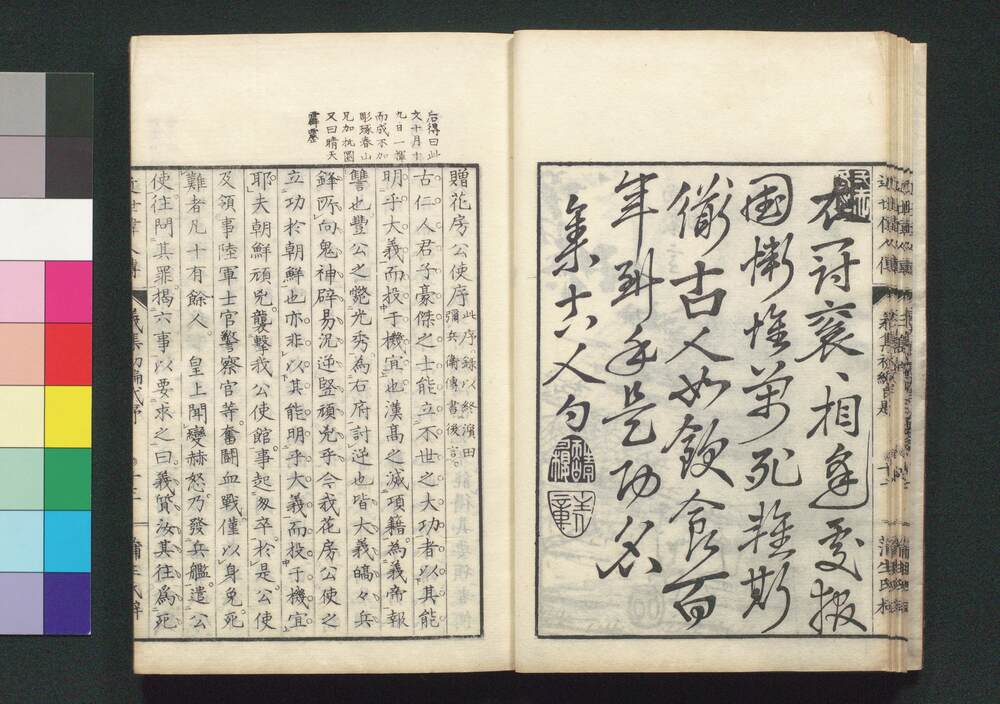 衣冠褒、相逢更報
国慚惟萬死難期
儀古人如飲食百
年到手是功名
集古人句
后得曰此
文十月十
九日一揮
而成不加
彫琢春山
兄加批圏
又曰晴天
霹靂
贈花房公使序
此序錄以終濱田
彌兵衛傳書後言
古仁人君子豪傑之士能立不世之大功者以其能
明乎大義而投于機宜也漢高之滅項籍為義帝報
讐也豐公之斃光秀為右府討逆也皆大義皜々兵
鋒所向鬼神辟易況逆豎頑兇乎今我花房公使之
立功於朝鮮也亦非以其能明乎大義而投于機宜
耶夫朝鮮頑兇襲擊我公使館事起匆卒於是公使
及領事陸軍士官警察官等奮鬪血戰僅以身免死
難者凡十有餘人 皇上聞變赫怒乃發兵艦遣公
使往問其罪揭六事以要求之曰義質汝其往為死